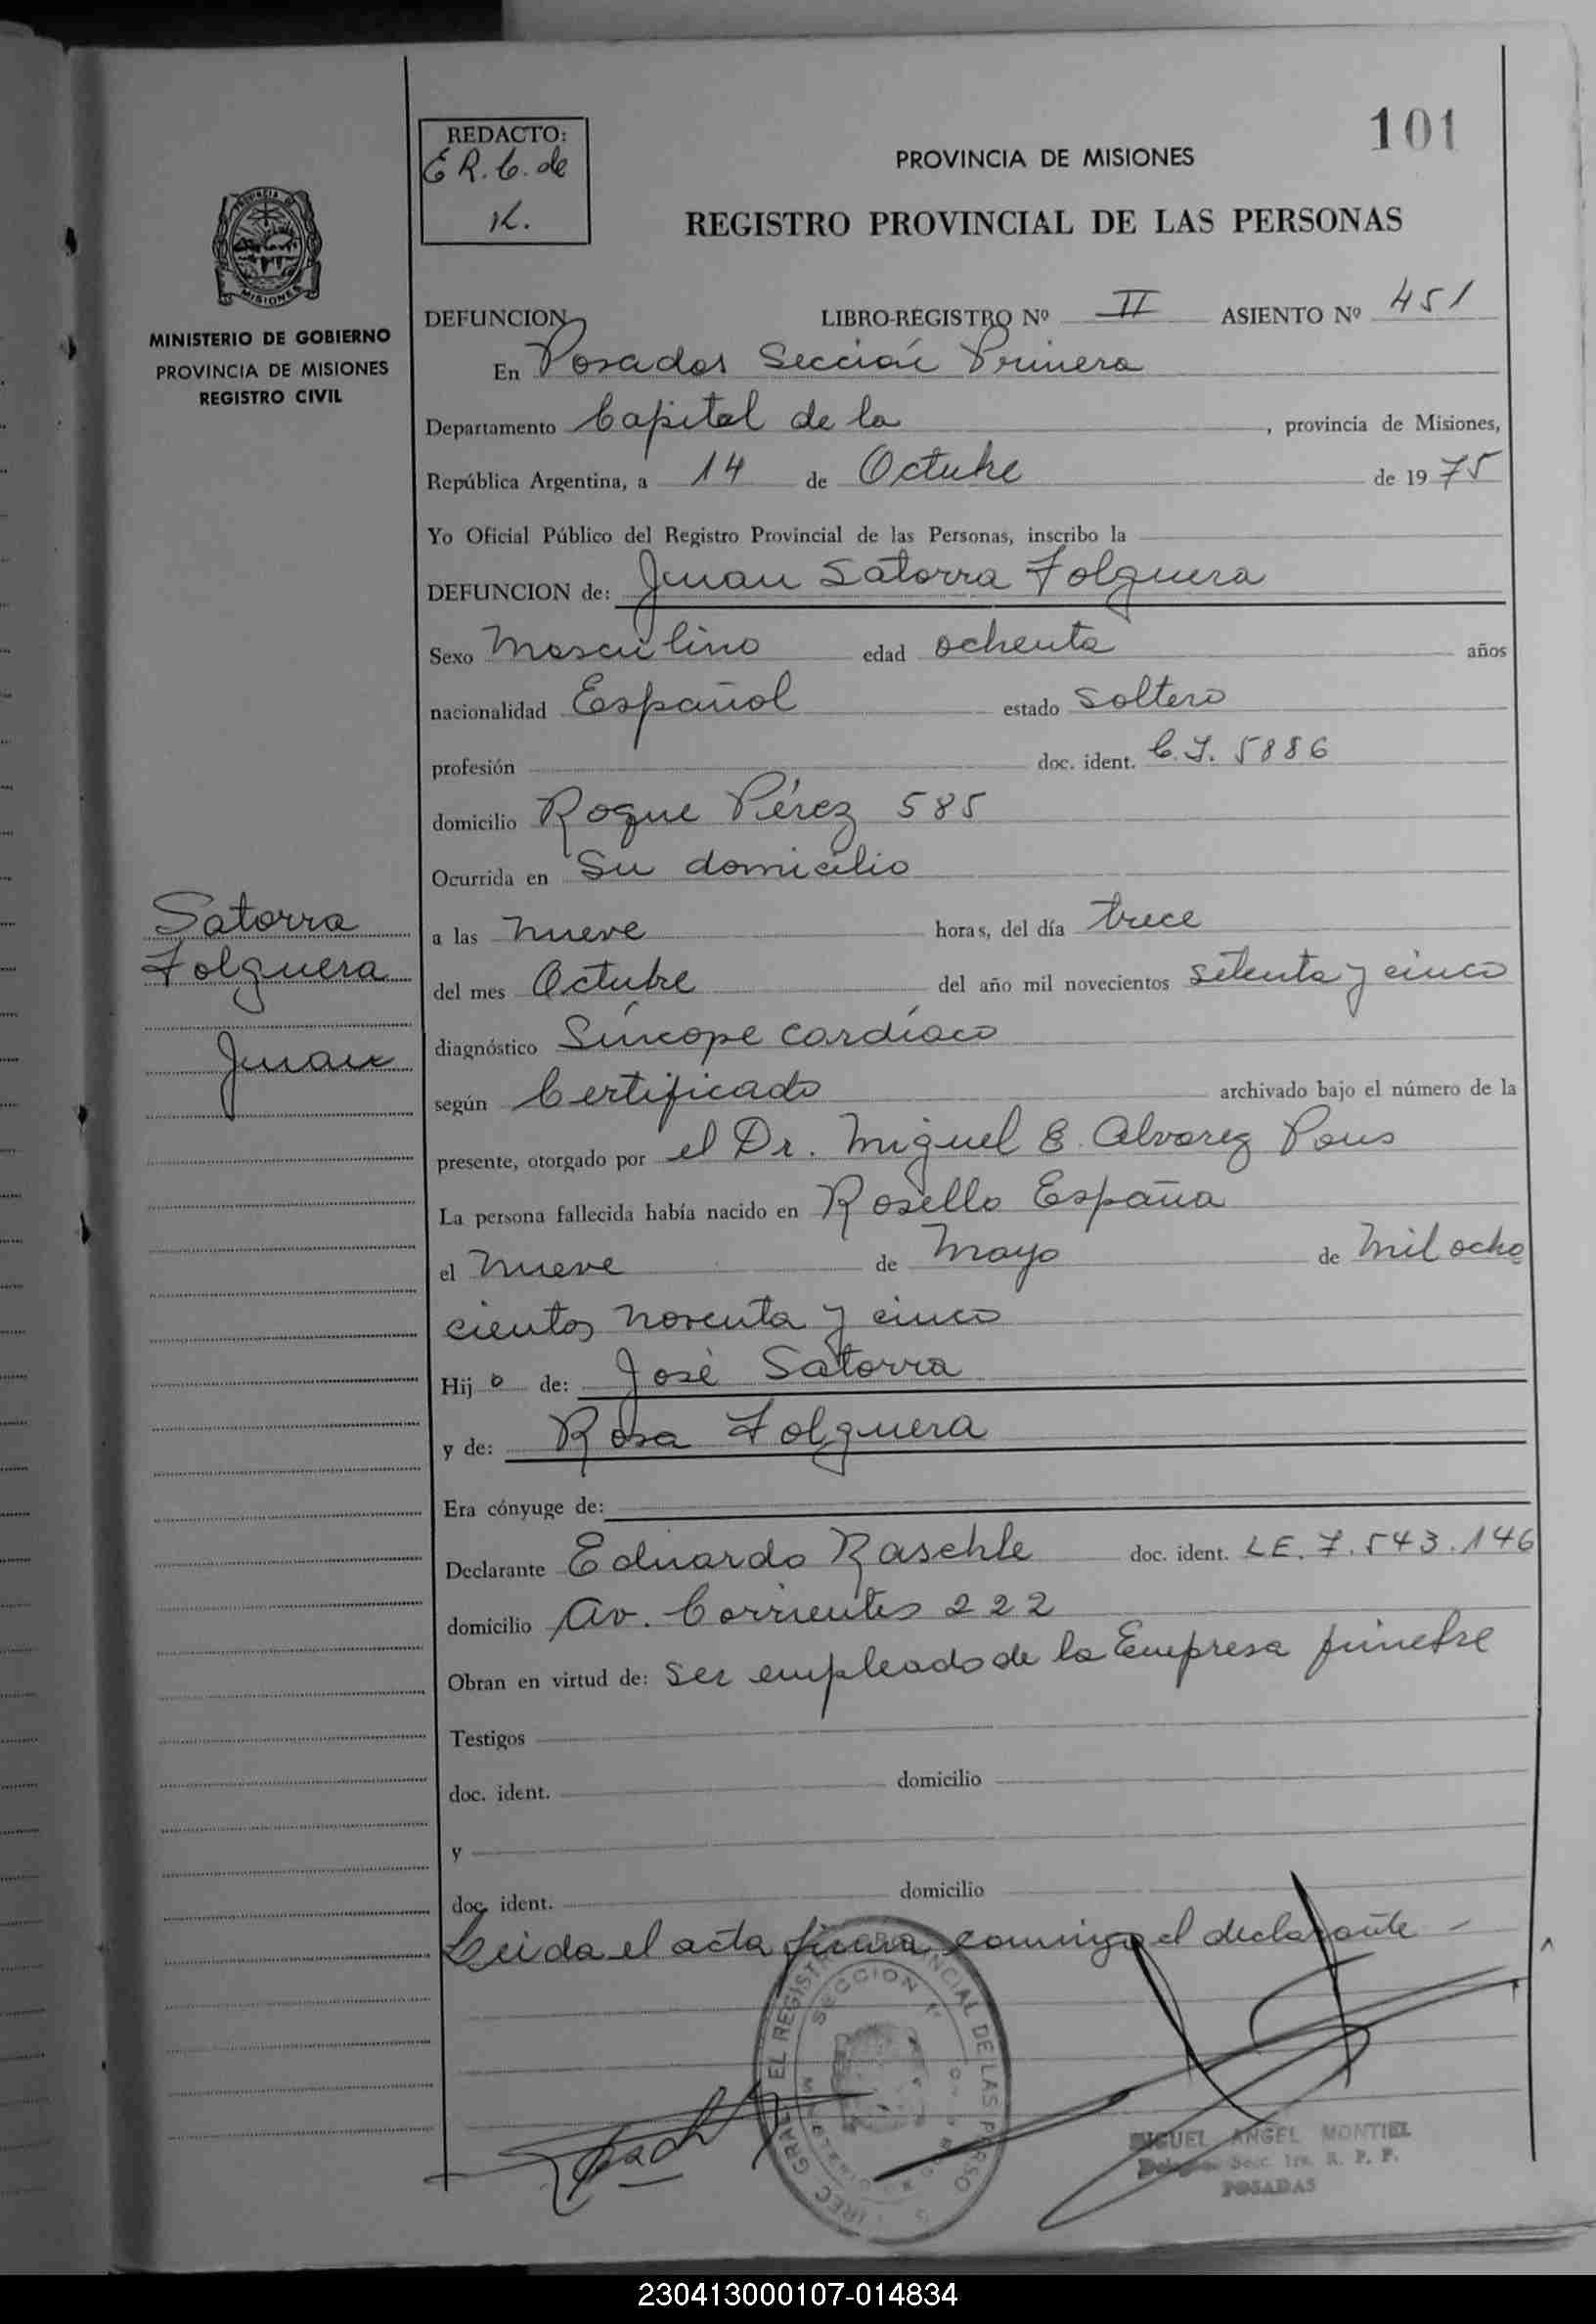 101
REDACTO:
E R. C. de
K.
PROVINCIA DE MISIONES
REGISTRO PROVINCIAL DE LAS PERSONAS
PROVINCIA DE
MISIONES
MINISTERIO DE GOBIERNO
PROVINCIA DE MISIONES
REGISTRO CIVIL
DEFUNCION LIBRO-REGISTRO Nº II ASIENTO Nº 451
En Posadas Sección Primera
Departamento Capital de la , provincia de Misiones,
República Argentina, a 14 de Octubre de 1975
Yo Oficial Público del Registro Provincial de las Personas, inscribo la
DEFUNCION de: Juan Satorra Folguera
Sexo Masculino edad ochenta años
nacionalidad Español estado Soltero
profesión doc. ident. C.I. 5886
domicilio Roque Pérez 585
Ocurrida en Su domicilio
Satorra
Folguera
Juan
a las nueve horas, del día trece
del mes Octubre del año mil novecientos setenta y cinco
diagnóstico Síncope cardíaco
según Certificado archivado bajo el número de la
presente, otorgado por el Dr. Miguel E. Alvarez Pous
La persona fallecida había nacido en Rosello España
el nueve de Mayo de Mil ocho
cientos noventa y cinco
Hijo de: José Satorra
y de: Rosa Folguera
Era cónyuge de:
Declarante Eduardo Raschle doc. ident. LE. 7.543.146
domicilio Av. Corrientes 222
Obran en virtud de: Ser empleado de la Empresa fúnebre
Testigos
doc. ident. domicilio
y
doc. ident. domicilio
Leida el acta firma conmigo el declarante -
SECCION 1ª
MIGUEL ANGEL MONTIEL
Secc. 1ra. R. P. P.
POSADAS
230413000107-014834